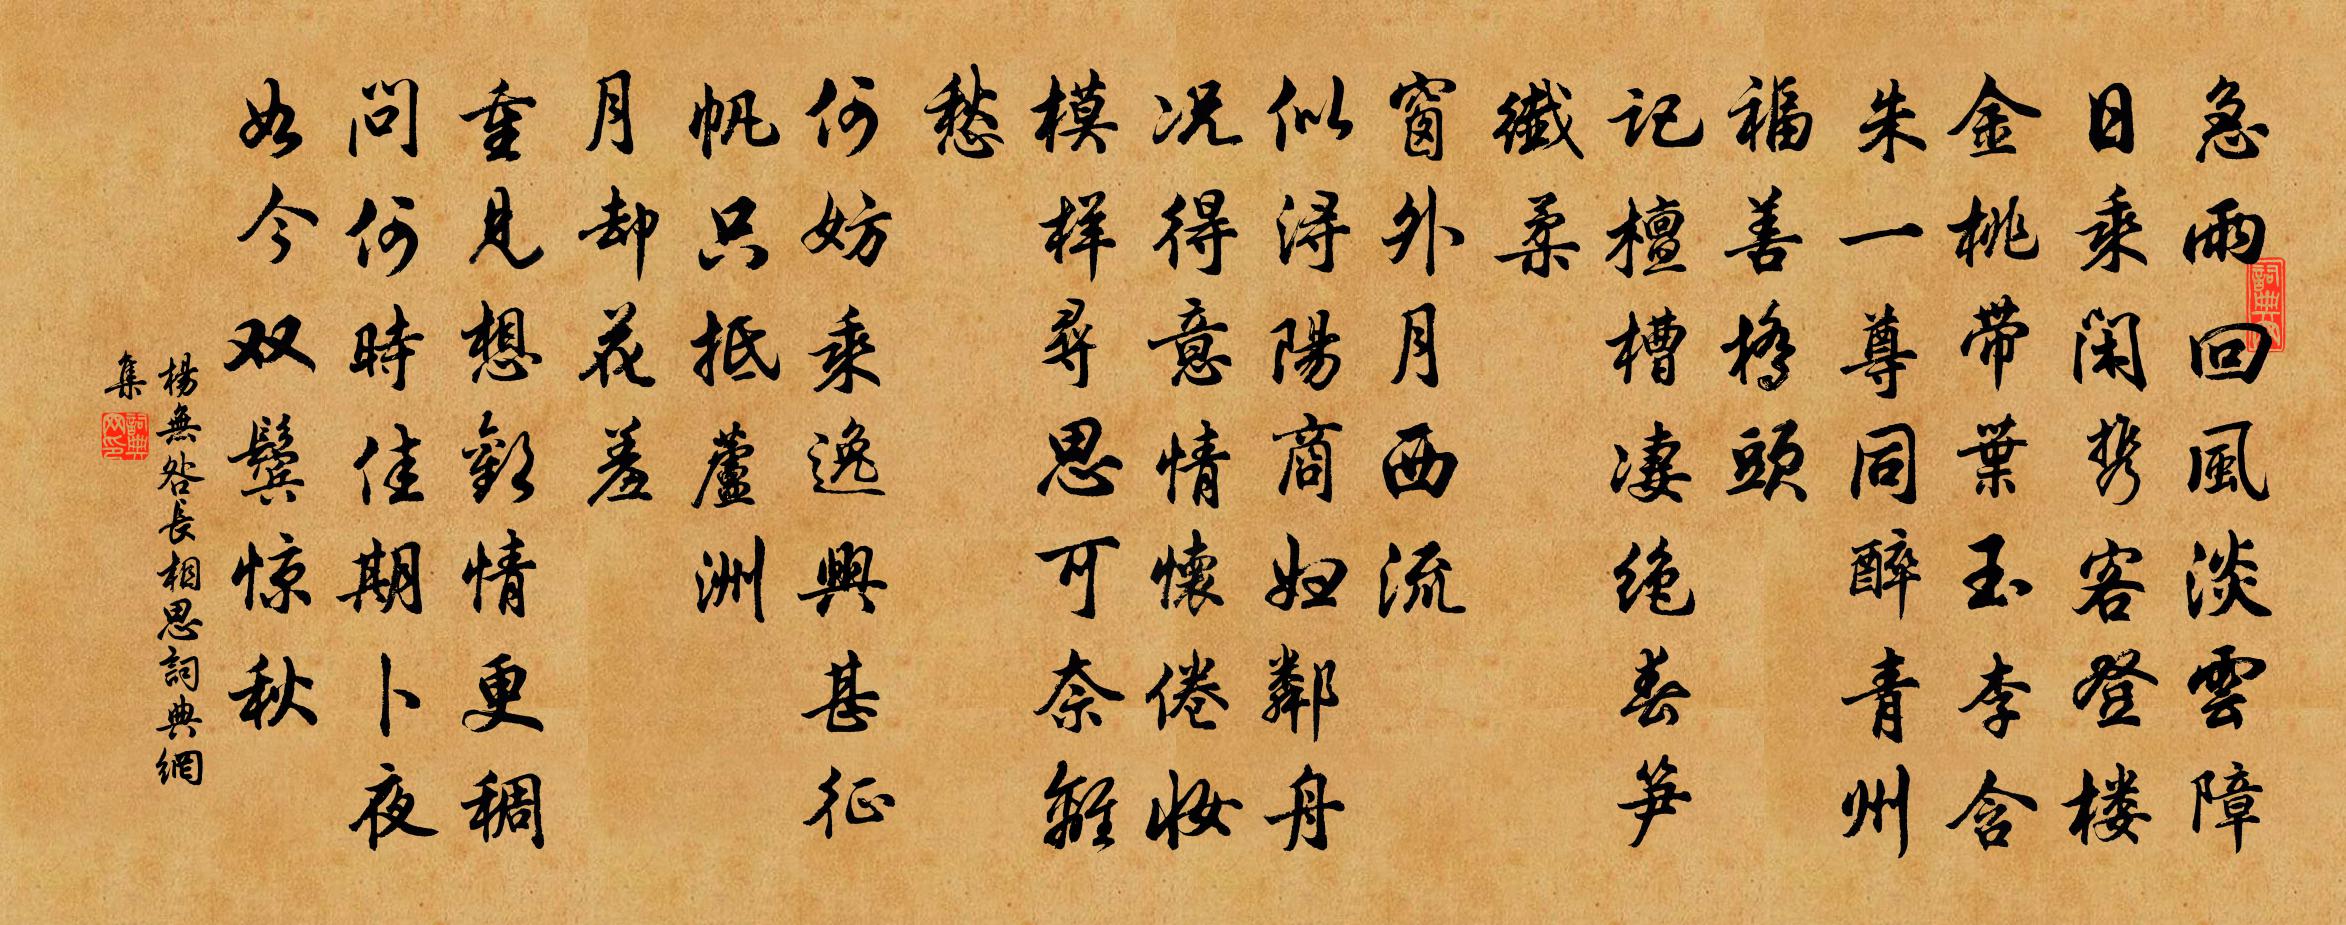 急雨回風淡雲障
日乘闲携客登楼
金桃带葉玉李含
朱一尊同醉青州
福善橋頭
记檀槽凄绝春笋
纖柔
窗外月西流
似浔陽商妇鄰舟
况得意情懷倦妆
模样尋思可奈離
愁
何妨乘逸興甚征
帆只抵蘆洲
月却花羞
重見想歡情更稠
問何時佳期卜夜
如今双鬓惊秋
楊無咎長相思詞典網
集